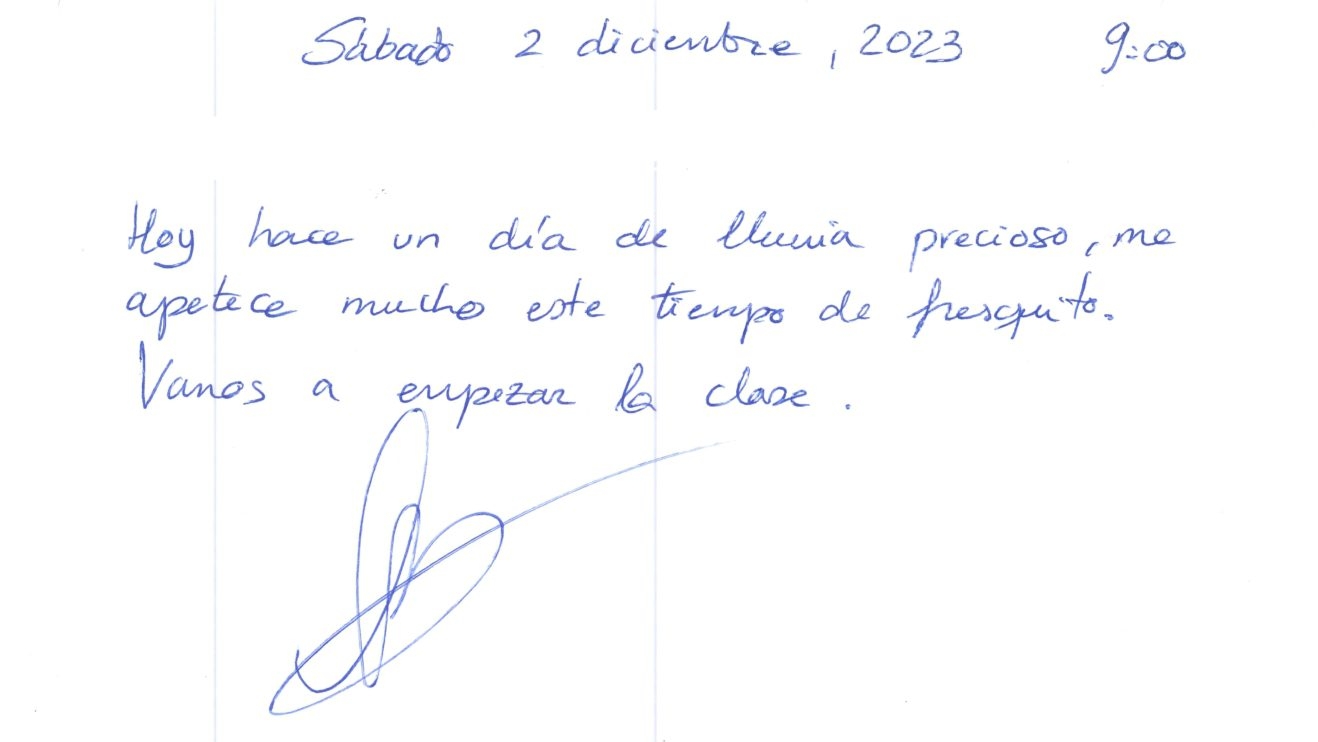 Sábado 2 diciembre, 2023 9:00
Hoy hace un día de lluvia precioso, me
apetece mucho este tiempo de fresquito.
Vamos a empezar la clase.